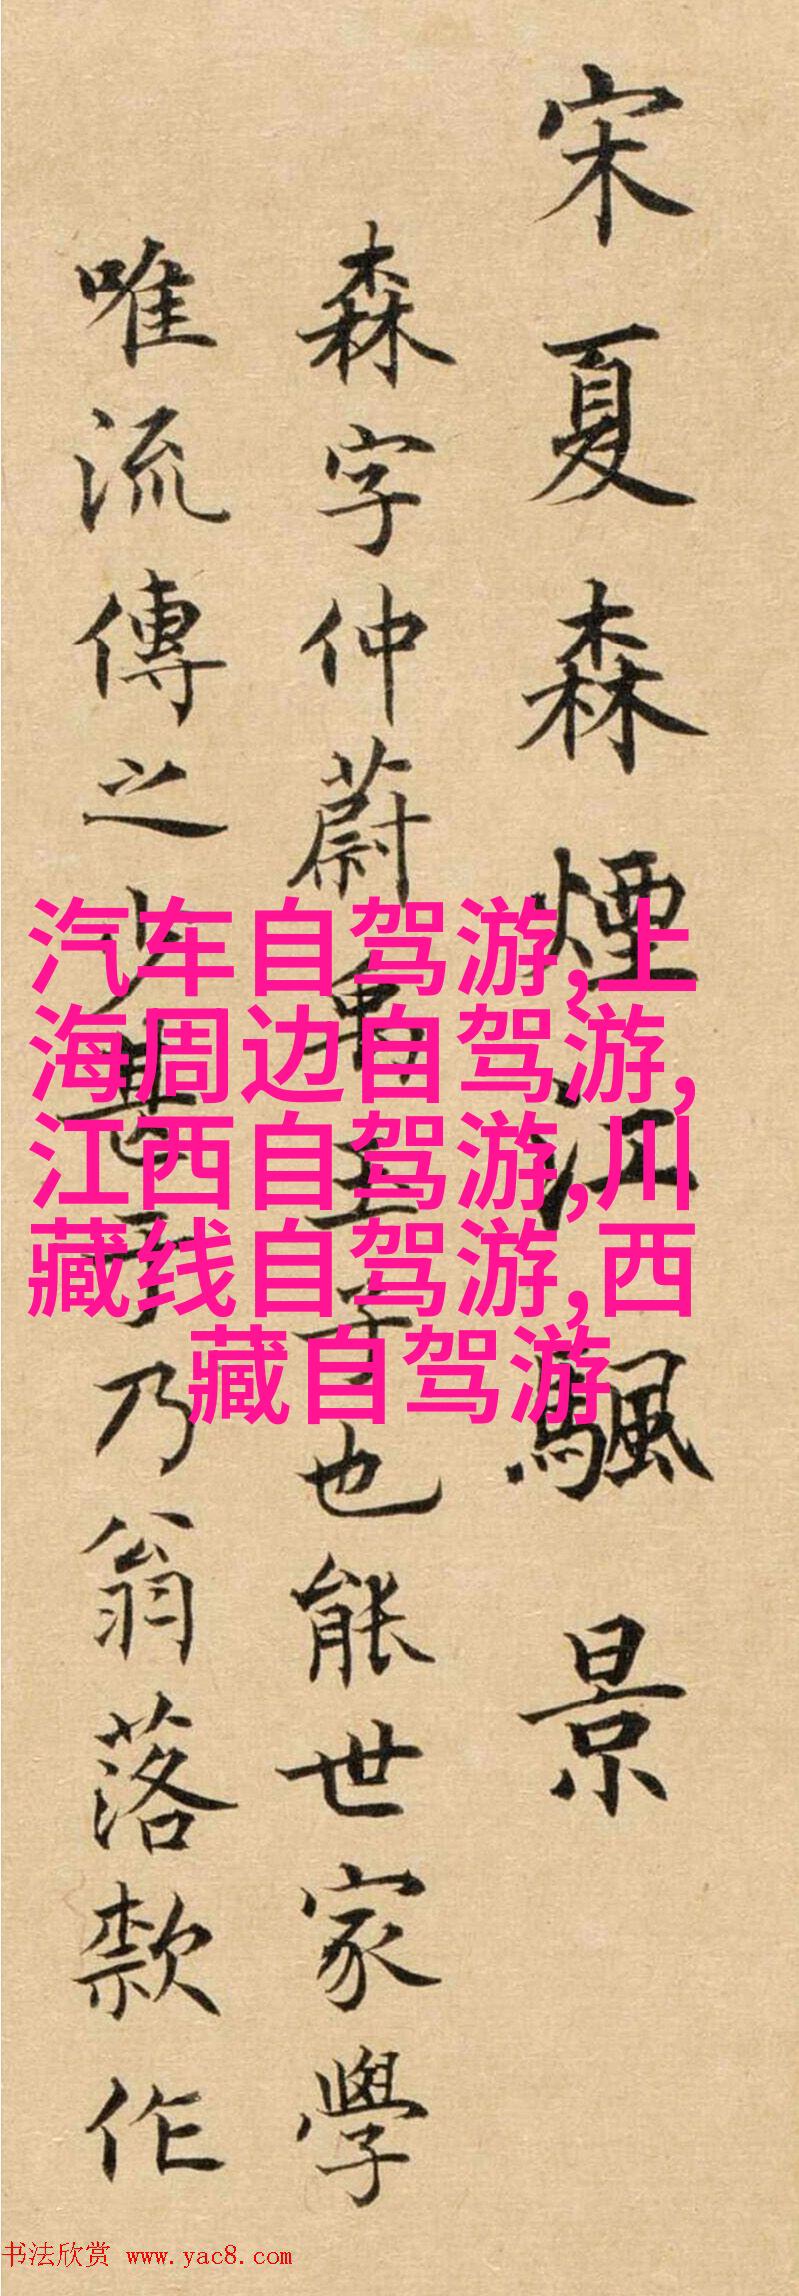 宋夏森煙江颿景
森字仲蔚禹玉子也能世家學
唯流傳之少甚于乃翁落款作
汽车自驾游,上
海周边自驾游,
江西自驾游,川
藏线自驾游,西
藏自驾游
书法欣赏 www.yac8.com